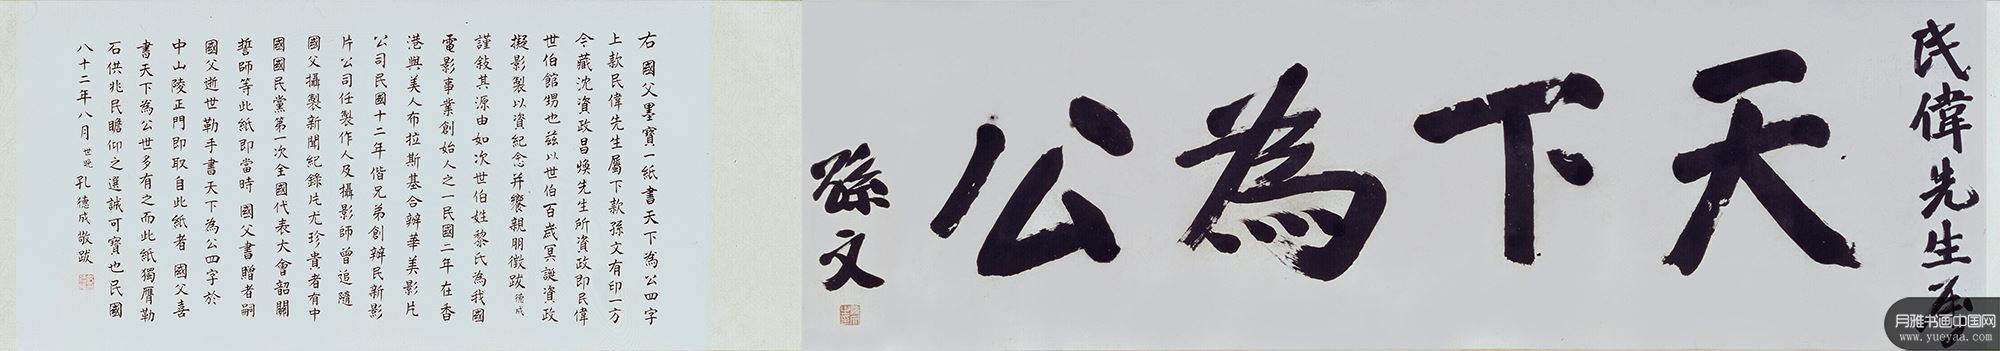 民偉先生屬
天下為公
孫文
右國父墨寶一紙書天下為公四字
上款民偉先生屬下款孫文有印一方
今藏沈資政昌煥先生所資政即民偉
世伯館甥也茲以世伯百歲冥誕資政
擬影製以資紀念并饗親朋徵跋德成
謹敍其源由如次世伯姓黎氏為我國
電影事業創始人之一民國二年在香
港與美人布拉斯基合辦華美影片
公司民國十二年偕兄弟創辦民新影
片公司任製作人及攝影師曾追隨
國父攝製新聞紀錄片尤珍貴者有中
國國民黨第一次全國代表大會韶關
誓師等此紙即當時國父書贈者嗣
國父逝世勒手書天下為公四字於
中山陵正門即取自此紙者國父喜
書天下為公世多有之而此紙獨膺勒
石供兆民瞻仰之選誠可寶也民國
八十二年八月世晚孔德成敬跋
月雅书画中国网
www.yueyaa.com